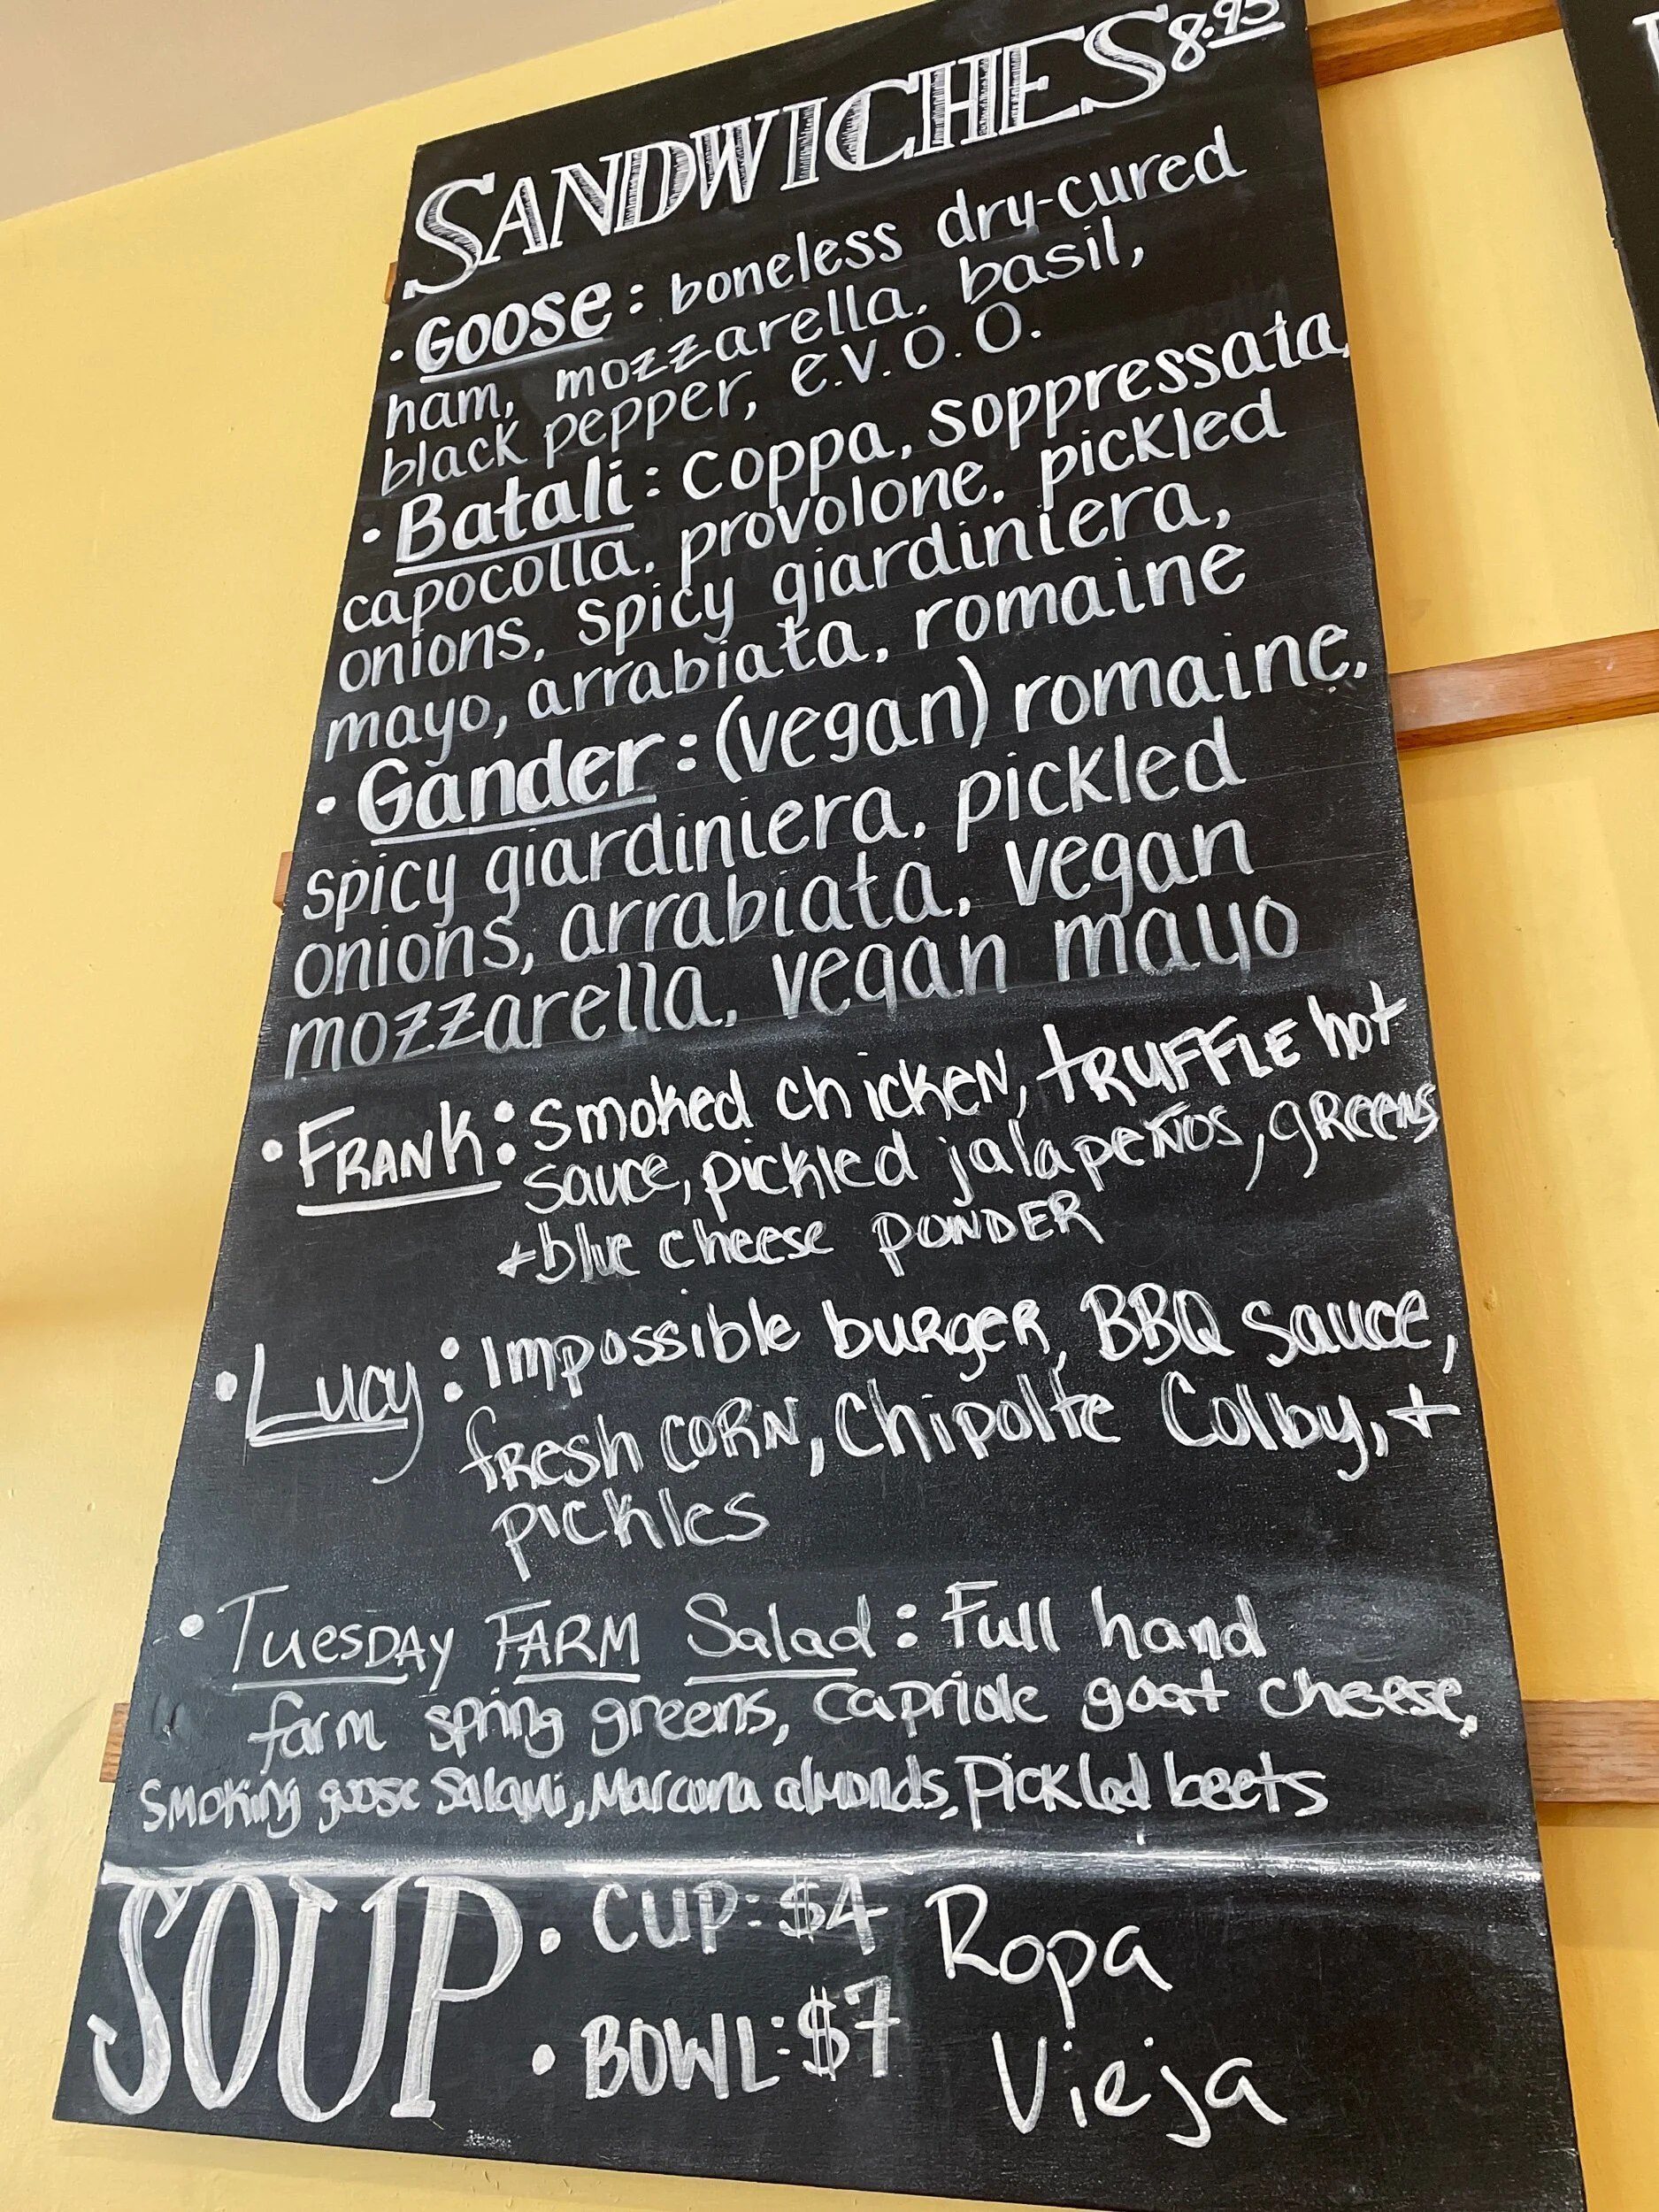 SANDWICHES 8.95
• GOOSE: boneless dry-cured
ham, mozzarella, basil,
black pepper, e.v.o.o.
• Batali: coppa, soppressata,
capocolla, provolone, pickled
onions, spicy giardiniera,
mayo, arrabiata, romaine
• Gander: (vegan) romaine,
spicy giardiniera, pickled
onions, arrabiata, vegan
mozzarella, vegan mayo
• FRANK: Smoked chicken, tRUFFLE hot
sauce, pickled jalapeños, gReens
+ blue cheese POWDER
• Lucy: Impossible burger, BBQ sauce,
fresh CORN, Chipolte Colby, +
pickles
• Tuesday FARM Salad: Full hand
farm spring greens, Capriole goat cheese,
Smoking goose Salami, Marcona almonds, Pickled beets
SOUP • CUP: $4 Ropa
• BOWL: $7 Vieja